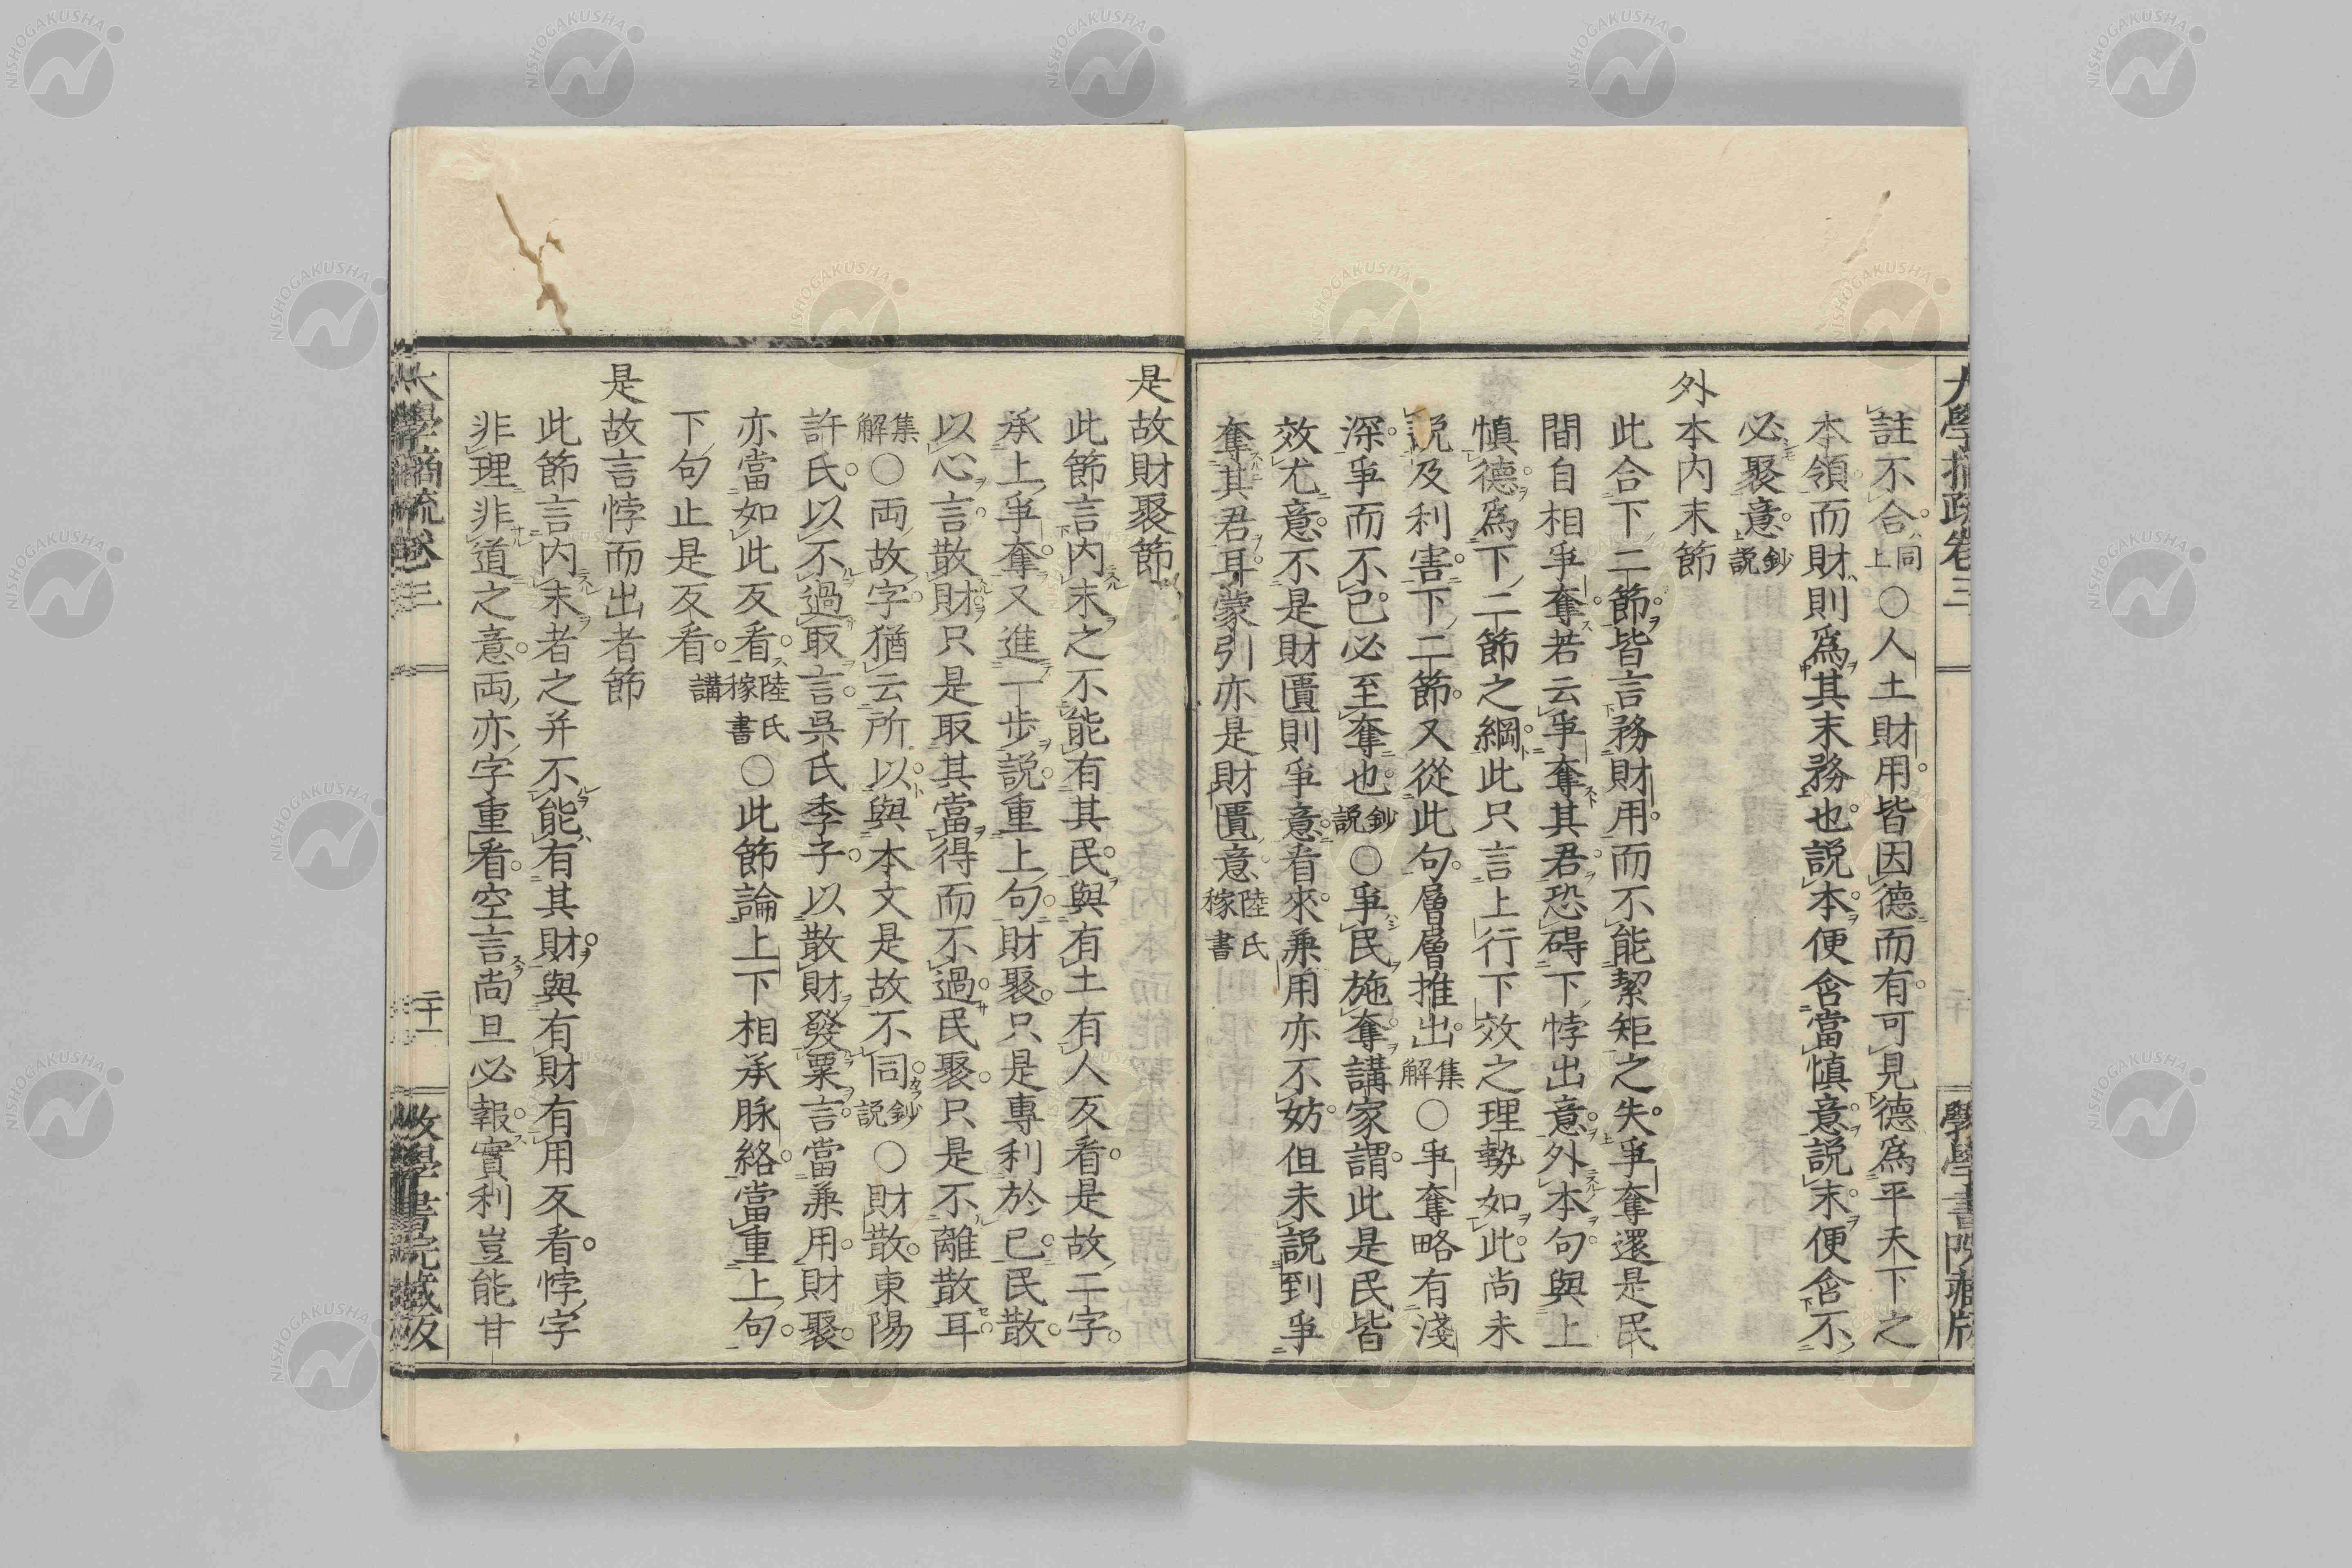 大學摘疏卷三
學學書院藏版
註不合同上○人土財用皆因德而有可見德爲平天下之
本領而財則爲其末務也説本便含當愼意説末便含不
必聚意鈔説
外本内末節
此合下二節皆言務財用而不能絜矩之失爭奪還是民
間自相爭奪若云爭奪其君恐碍下悖出意外本句與上
愼德爲下二節之綱此只言上行下效之理勢如此尚未
説及利害下二節又從此句層層推出集解○爭奪略有淺
深爭而不已必至奪也鈔説○爭民施奪講家謂此是民皆
效尤意不是財匱則爭意看來兼用亦不妨但未説到爭
奪其君耳蒙引亦是財匱意陸氏稼書
是故財聚節
此節言内末之不能有其民與有土有人反看是故二字
承上爭奪又進一歩説重上句財聚只是專利於已民散
以心言散財只是取其當得而不過民聚只是不離散耳
集解○両故字猶云所以與本文是故不同鈔説○財散東陽
許氏以不過取言呉氏季子以散財發粟言當兼用財聚
亦當如此反看陸氏稼書講○此節論上下相承脉絡當重上句
下句止是反看
是故言悖而出者節
此節言内末者之并不能有其財與有財有用反看悖字
非理非道之意両亦字重看空言尚且必報實利豈能甘
大學摘疏卷三
二十一
學學書院藏版